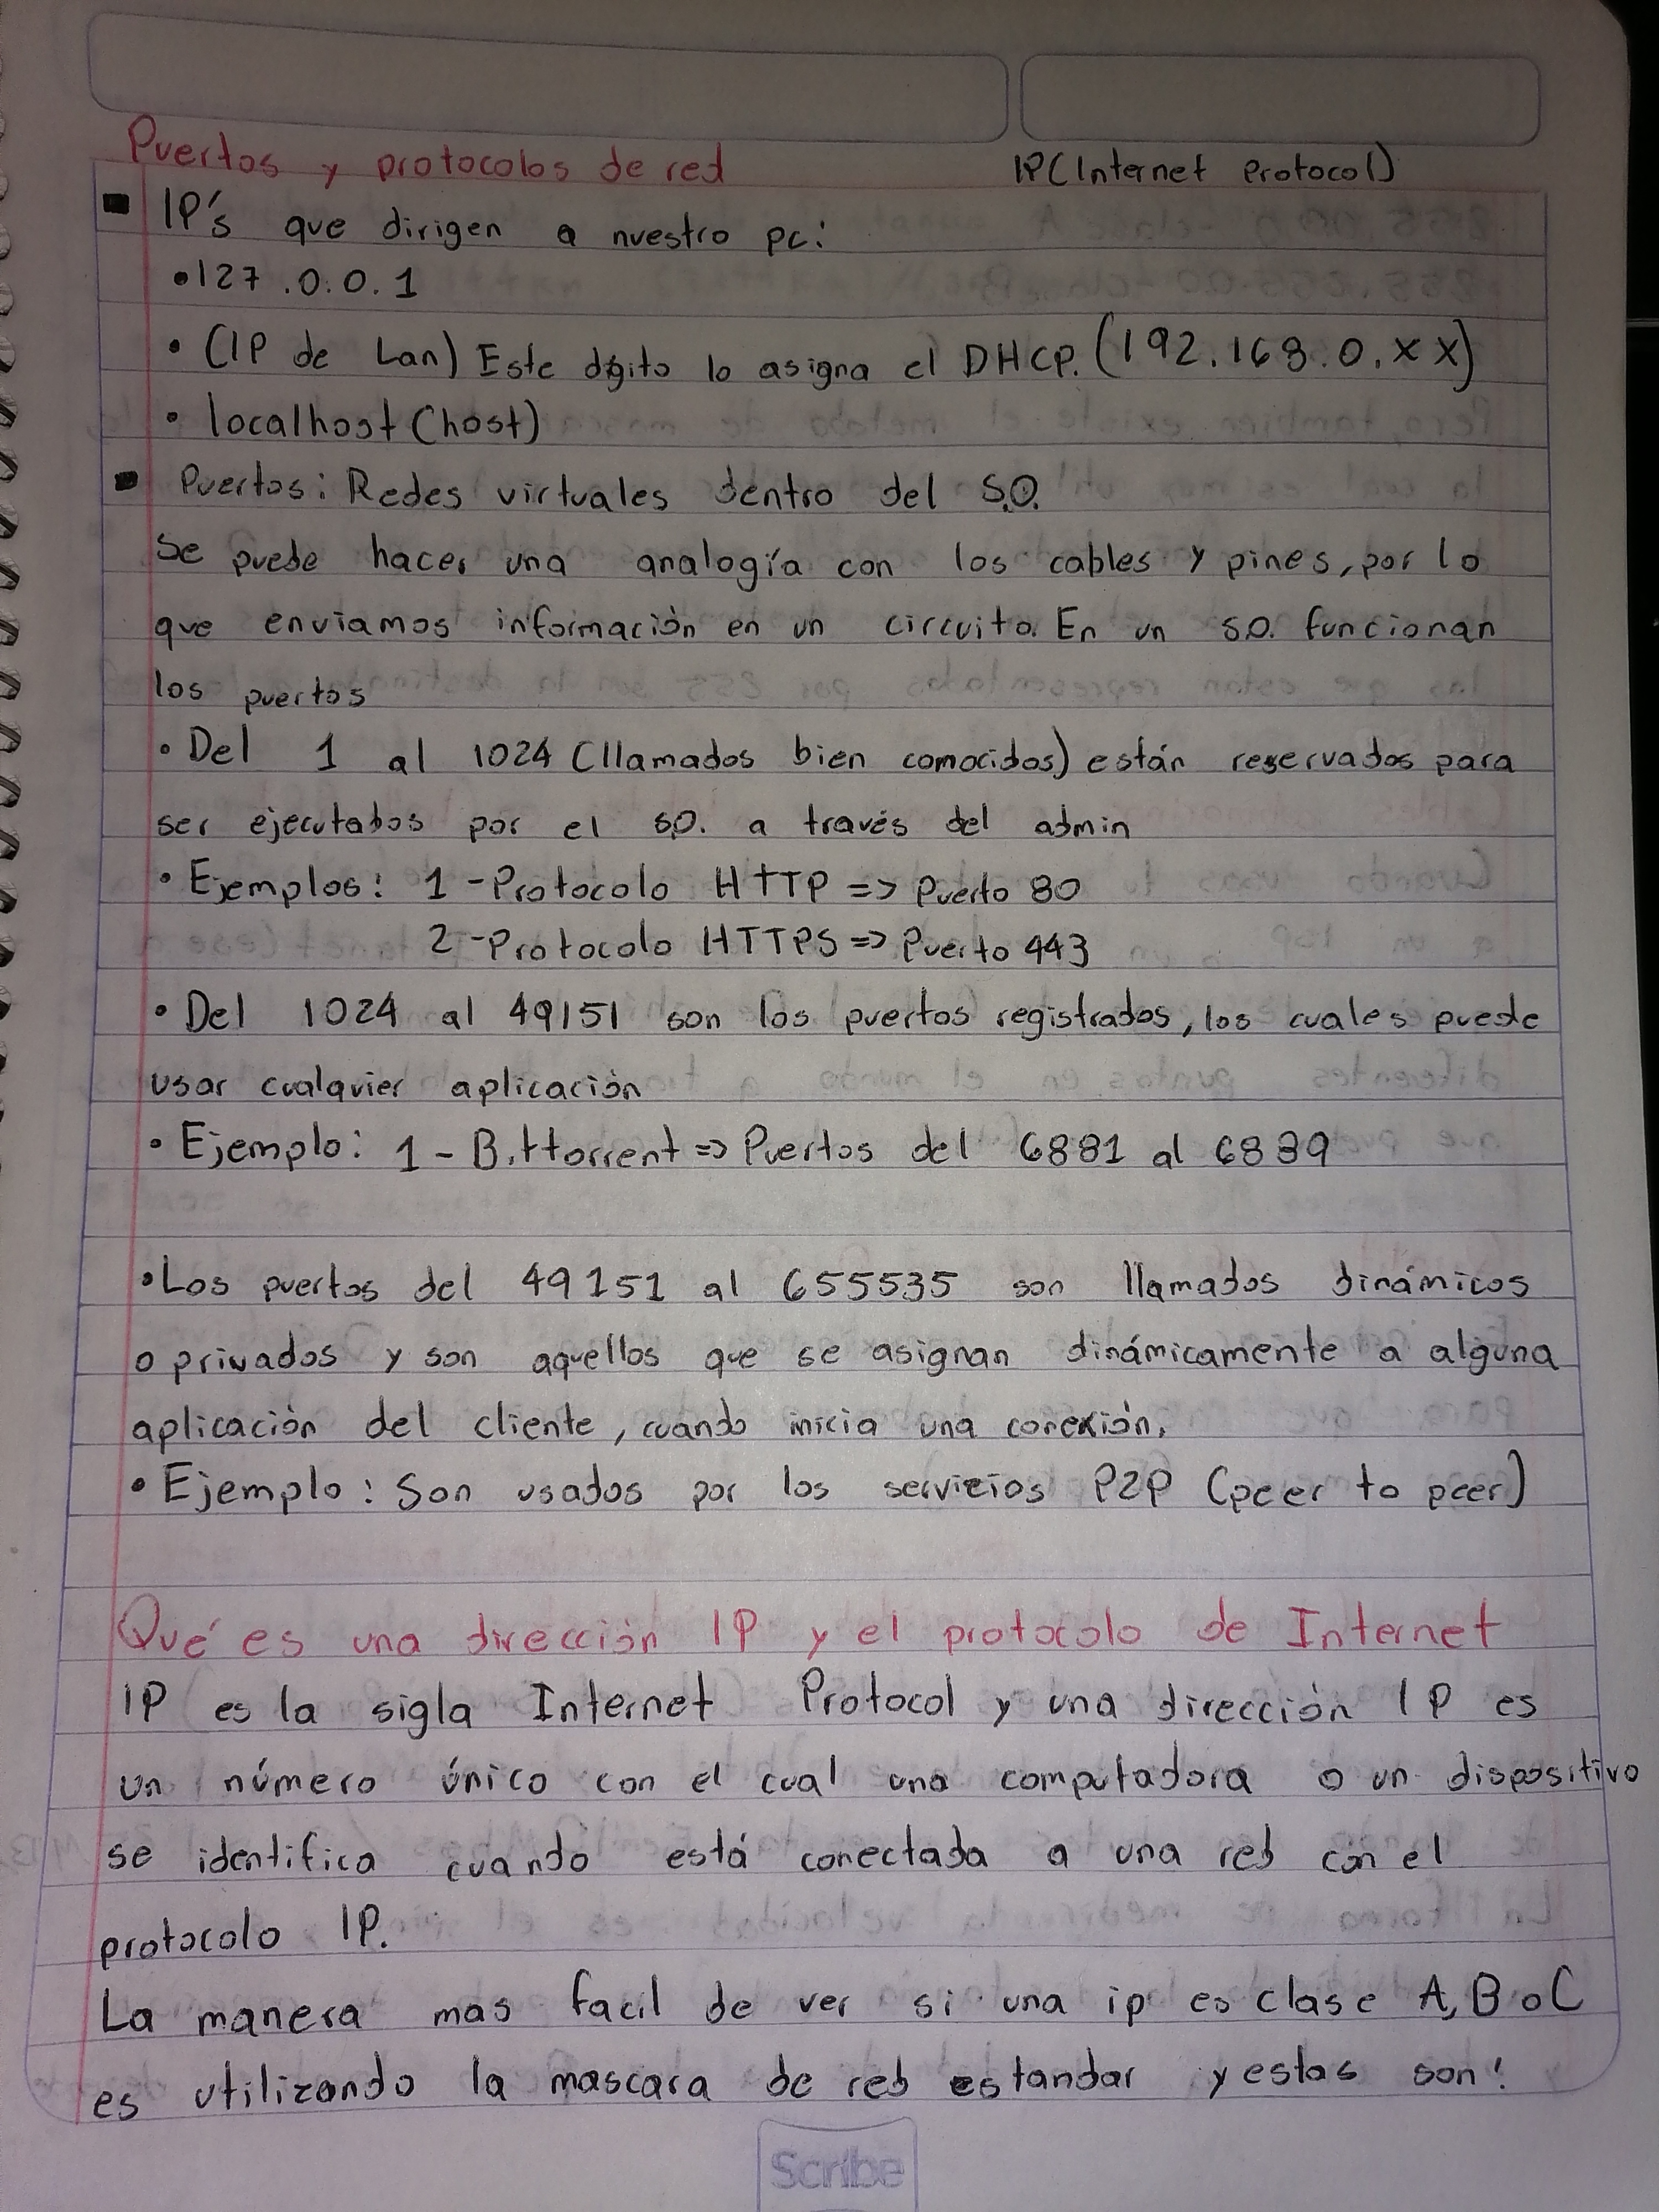 Puertos y protocolos de red IP(Internet Protocol)
IP's que dirigen a nuestro pc:
•127.0.0.1
• (IP de Lan) Este dígito lo asigna el DHCP. (192.168.0.XX)
• localhost (host)
Puertos: Redes virtuales dentro del S.O.
Se puede hacer una analogía con los cables y pines, por lo
que enviamos información en un circuito. En un S.O. funcionan
los puertos
• Del 1 al 1024 (llamados bien comocidos) están reservados para
ser ejecutados por el S.O. a través del admin
• Ejemplos: 1 - Protocolo HTTP => Puerto 80
2 - Protocolo HTTPS => Puerto 443
• Del 1024 al 49151 son los puertos registrados, los cuales puede
usar cualquier aplicación
• Ejemplo: 1 - Bittorrent => Puertos del 6881 al 6889
• Los puertos del 49151 al 655535 son llamados dinámicos
o privados y son aquellos que se asignan dinámicamente a alguna
aplicación del cliente, cuando inicia una conexión.
• Ejemplo: Son usados por los servicios P2P (peer to peer)
Qué es una dirección IP y el protocolo de Internet
IP es la sigla Internet Protocol y una dirección IP es
un número único con el cual una computadora o un dispositivo
se identifica cuando está conectada a una red con el
protocolo IP.
La manera mas facil de ver si una ip es clase A, B o C
es utilizando la mascara de red estandar y estas son:
Scribe